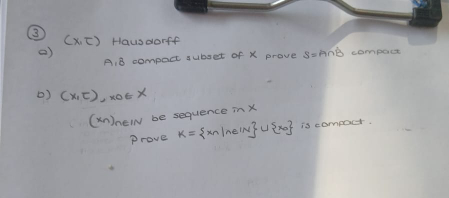 ③ (X,τ) Hausdorff
a) A,B compact subset of X prove S=A∩B compact
b) (X,τ), x0 ∈ X
(xn)n∈IN be sequence in X
Prove K = {xn|n∈IN} ∪ {x0} is compact.